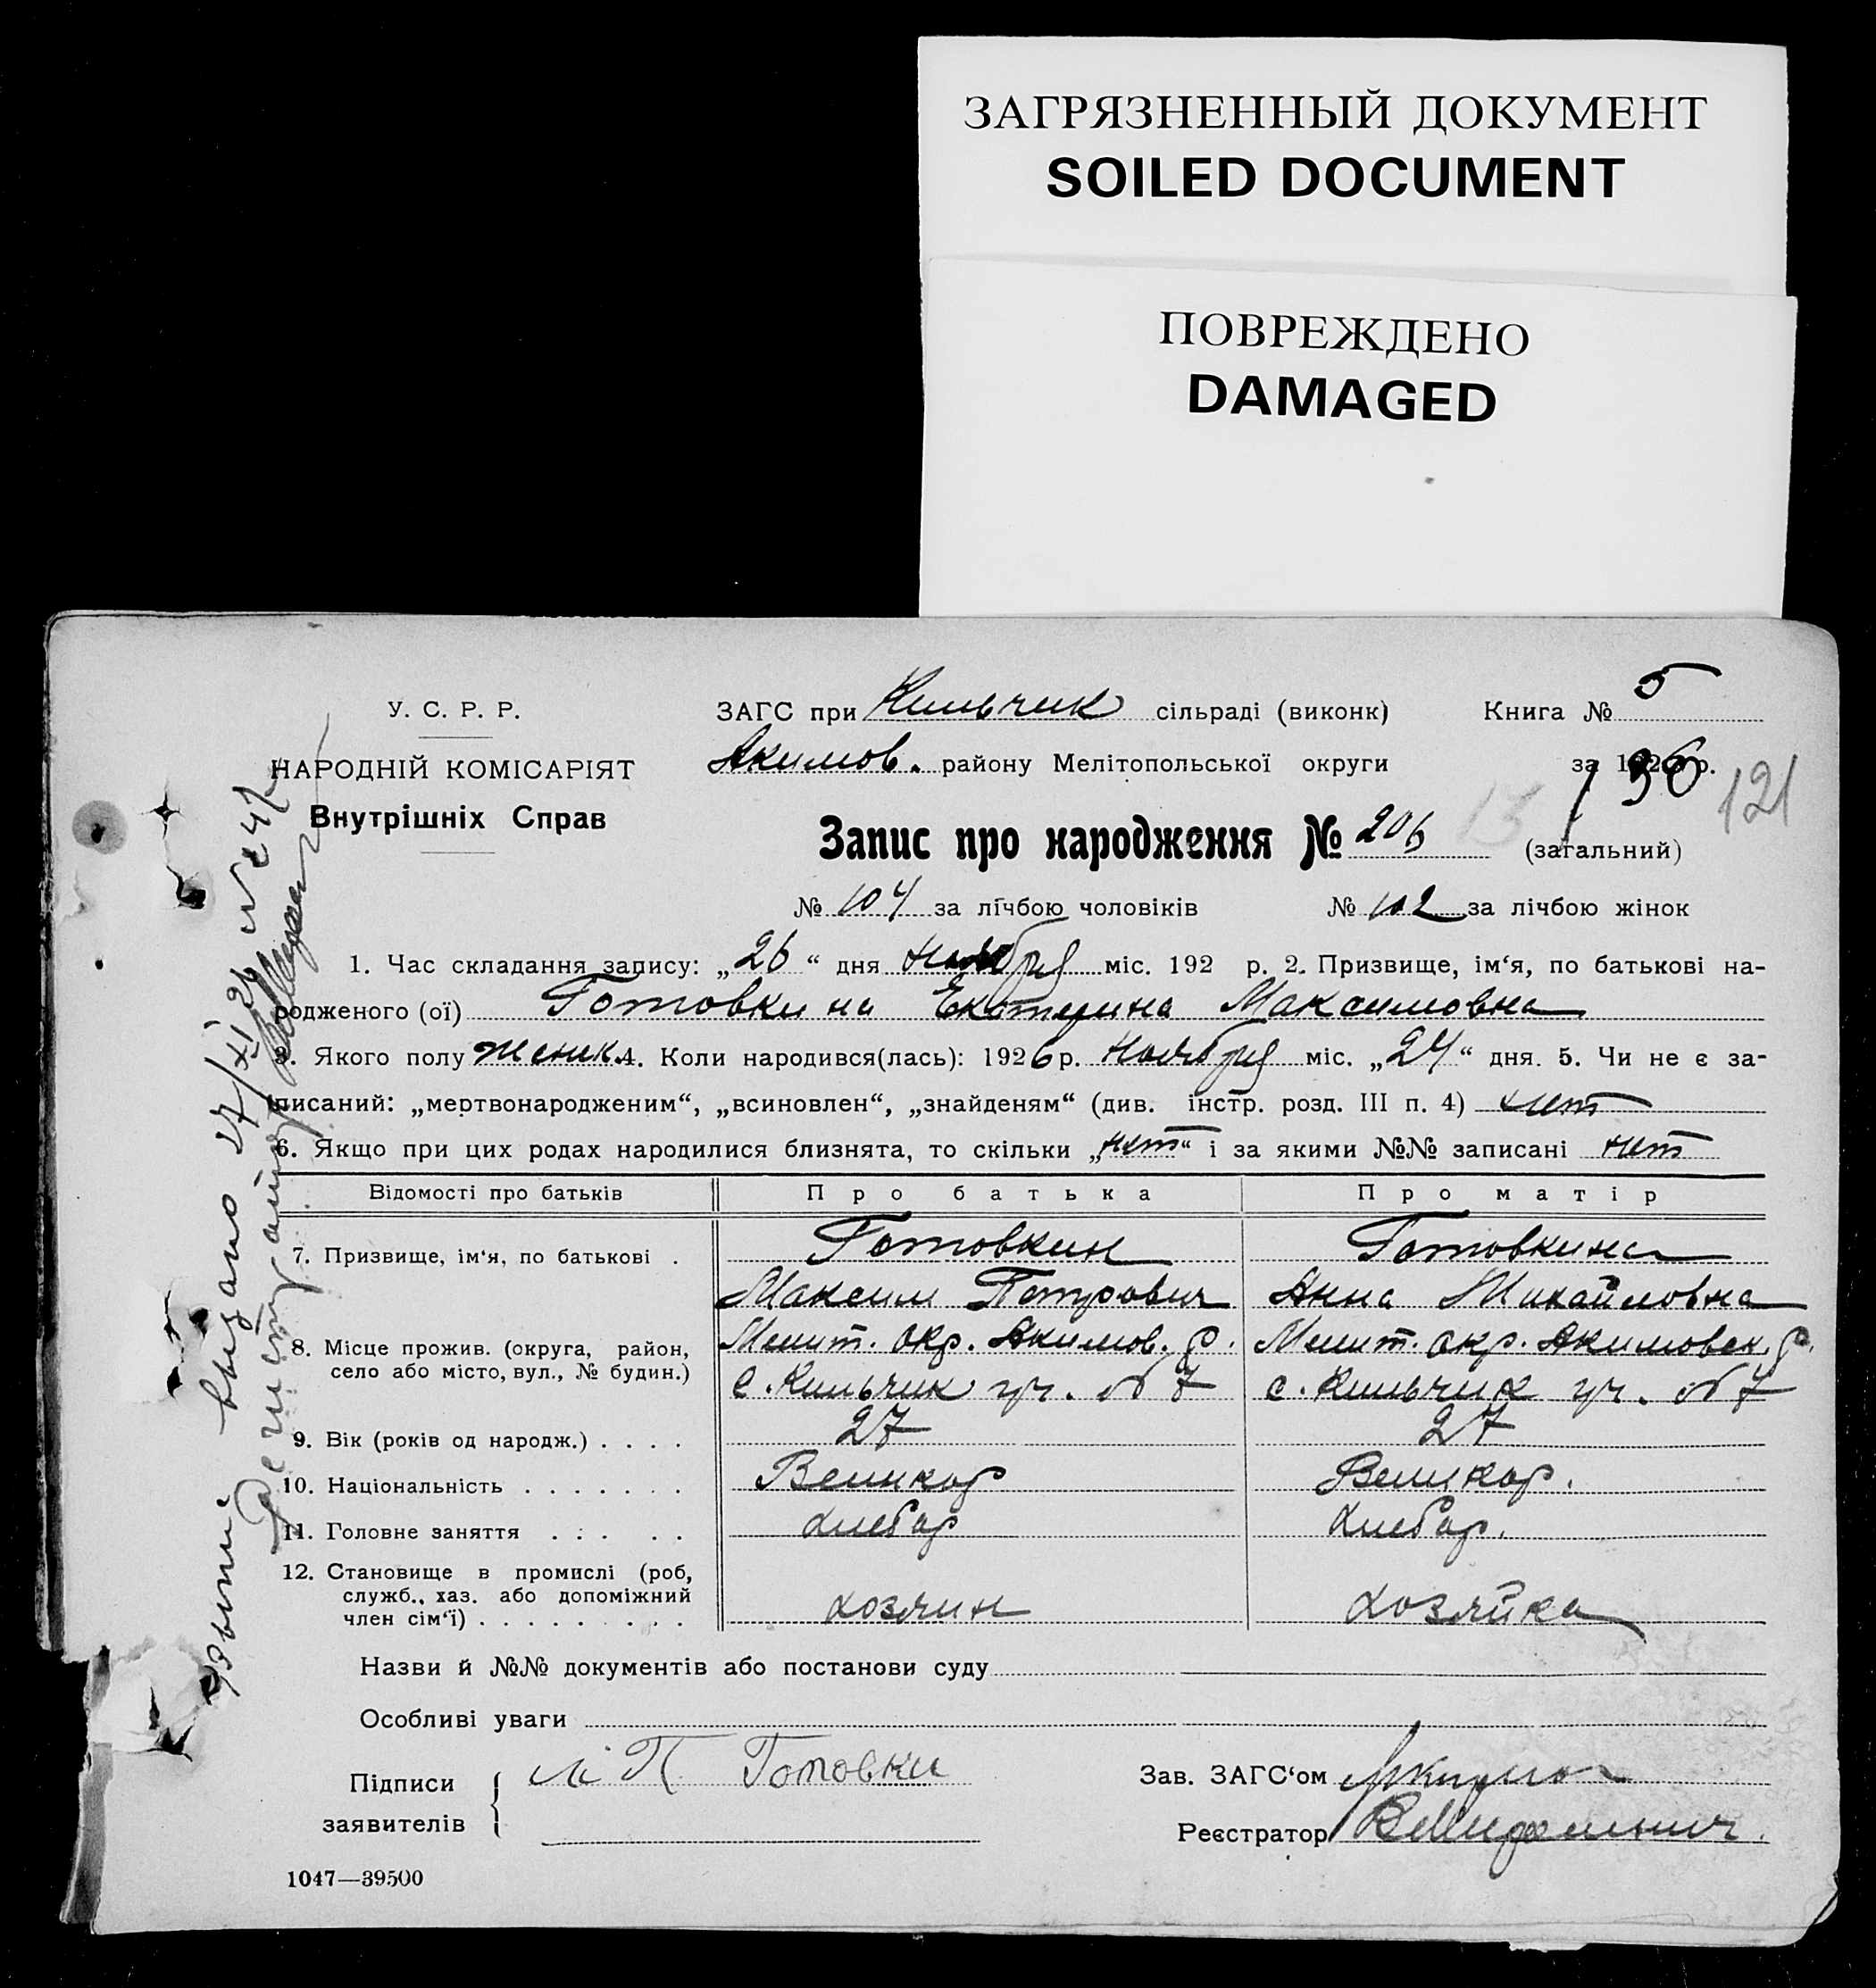 ЗАГРЯЗНЕННЫЙ ДОКУМЕНТ
SOILED DOCUMENT
ПОВРЕЖДЕНО
DAMAGED
У. С. Р. Р.
НАРОДНІЙ КОМІСАРІЯТ
Внутрішніх Справ
ЗАГС при Кильчик сільраді (виконк) Книга № 5
Акимов. району Мелітопольської округи за 1926 р.
136
121
Запис про народження № 206 (загальний)
№ 104 за лічбою чоловіків № 102 за лічбою жінок
1. Час складання запису: „26“ дня ноября міс. 192 р. 2. Призвище, ім‘я, по батькові на-
родженого (ої) Готовкина Екатерина Максимовна
3. Якого полу женск. 4. Коли народився(лась): 1926 р. ноября міс. „24“ дня. 5. Чи не є за-
писаний: „мертвонародженим“, „всиновлен“, „знайденям“ (див. інстр. розд. III п. 4) нет
6. Якщо при цих родах народилися близнята, то скільки „нет“ і за якими №№ записані нет
Відомості про батьків Про батька Про матір
7. Призвище, ім‘я, по батькові . Готовкин Готовкина
Максим Петрович Анна Михайловна
8. Місце прожив. (округа, район, село або місто, вул., № будин.) Мелит. окр. Акимов. р. Мелит. окр. Акимовск. р.
с. Кильчик уч. № 7 с. Кильчик уч. № 7
9. Вік (років од народж.) . . . . 27 27
10. Національність . . . . . . . Великор Великор.
11. Головне заняття . . . . . Хлебор Хлебор.
12. Становище в промислі (роб,
служб., хаз. або допоміжний
член сім‘ї) . . . . . . . . . хозяин хозяйка
Назви й №№ документів або постанови суду
Особливі уваги
Підписи
заявителів
М П Готовки
Зав. ЗАГС‘ом
Реєстратор
1047—39500
выдано 27/XI 26